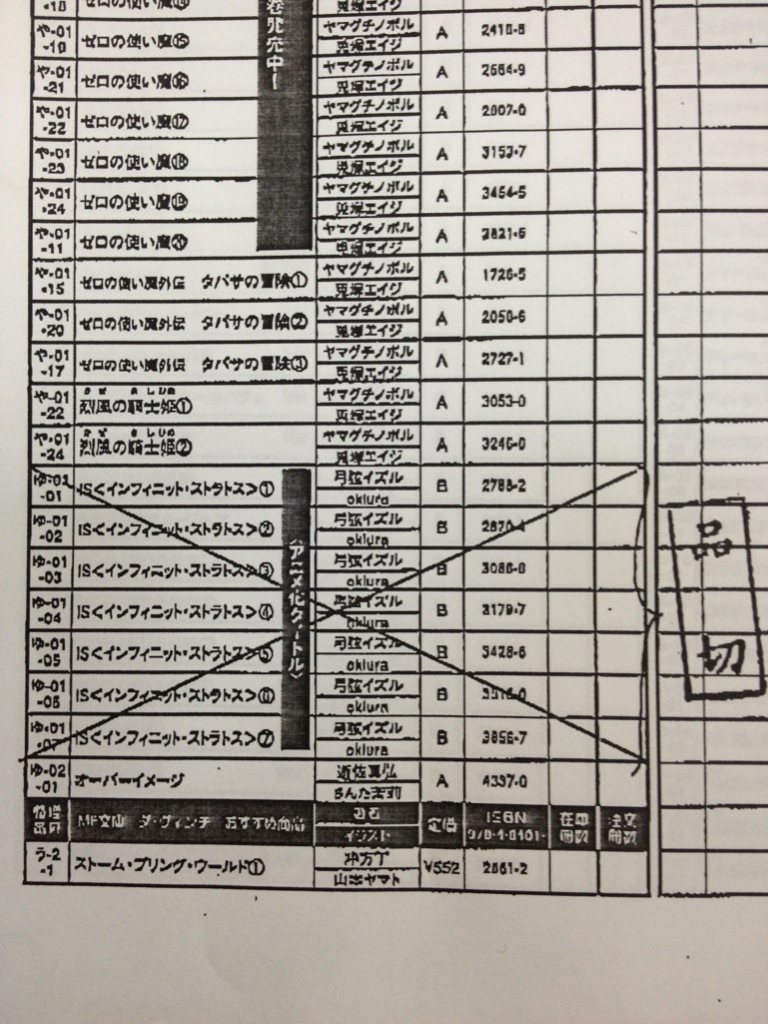 ヤマグチノボル
ゼロの使い魔⑮ A
-19 兎塚エイジ
や-01 ヤマグチノボル
ゼロの使い魔⑯ A 2664-9
-21 兎塚エイジ
や-01 ヤマグチノボル
ゼロの使い魔⑰ A
-22 兎塚エイジ
や-01 ヤマグチノボル
ゼロの使い魔⑱ A 3153-7
-23 兎塚エイジ
や-01 ヤマグチノボル
ゼロの使い魔⑲ A 3454-5
-24 兎塚エイジ
や-01 ヤマグチノボル
ゼロの使い魔⑳ A
-11 兎塚エイジ
や-01 ヤマグチノボル
ゼロの使い魔外伝 タバサの冒険① A 1726-5
-15 兎塚エイジ
や-01 ヤマグチノボル
ゼロの使い魔外伝 タバサの冒険② A
-20 兎塚エイジ
や-01 ヤマグチノボル
ゼロの使い魔外伝 タバサの冒険③ A 2727-1
-17 兎塚エイジ
や-01 ヤマグチノボル
烈風の騎士姫① A 3053-0
-22 兎塚エイジ
や-01 ヤマグチノボル
烈風の騎士姫② A
-24 兎塚エイジ
ゆ-01 弓弦イズル
IS<インフィニット・ストラトス>① B 2788-2
-01 okiura
ゆ-01 弓弦イズル
IS<インフィニット・ストラトス>② B
-02 okiura
ゆ-01 弓弦イズル
IS<インフィニット・ストラトス>③ B
-03 okiura
ゆ-01 弓弦イズル
IS<インフィニット・ストラトス>④ B 3179-7
-04 okiura
ゆ-01 弓弦イズル
IS<インフィニット・ストラトス>⑤ B 3428-6
-05 okiura
ゆ-01 弓弦イズル
IS<インフィニット・ストラトス>⑥ B
-06 okiura
ゆ-01 弓弦イズル
IS<インフィニット・ストラトス>⑦ B 3856-7
-07 okiura
〈アニメ化タイトル〉
品切
ゆ-02
オーバーイメージ A 4337-0
-01
MF文庫 ダ・ヴィンチ おすすめ商品 定価 ISBN 在庫冊数 注文冊数
978-4-8401-
ラ-2 冲方丁
ストーム・ブリング・ワールド① ¥552 2861-2
-1